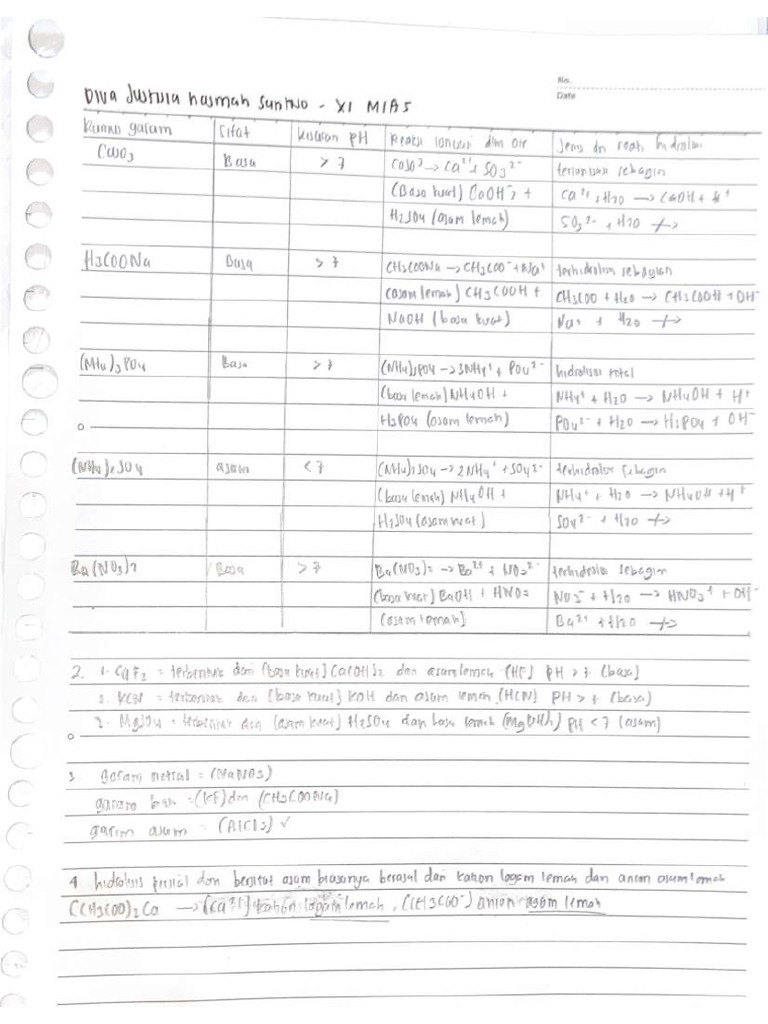 No.
Date
Diva Justicia hasmah - XI MIA5
Rumus garam | Sifat | kisaran pH | Reaksi ionisasi dlm air | Jenis dn reaksi hidrolisis
CaSO3 | Basa | > 7 | CaSO3 → Ca²⁺ + SO3²⁻ | terionisasi sebagian
(Basa kuat) CaOH + | Ca²⁺ + H2O → CaOH + H⁺
H2SO4 (asam lemah) | SO3²⁻ + H2O ↛
H3COONa | Basa | > 7 | CH3COONa → CH3COO⁻ + Na⁺ | terhidrolisis sebagian
(asam lemah) CH3COOH + | CH3COO + H2O → CH3COOH + OH⁻
NaOH (basa kuat) | Na⁺ + H2O ↛
(NH4)3PO4 | Basa | > 7 | (NH4)3PO4 → 3NH4⁺ + PO4²⁻ | hidrolisis total
(basa lemah) NH4OH + | NH4⁺ + H2O → NH4OH + H⁺
H3PO4 (asam lemah) | PO4²⁻ + H2O → H3PO4 + OH⁻
(NH4)2SO4 | asam | < 7 | (NH4)2SO4 → 2NH4⁺ + SO4²⁻ | terhidrolisis sebagian
(basa lemah) NH4OH + | NH4⁺ + H2O → NH4OH + H⁺
H2SO4 (asam kuat) | SO4²⁻ + H2O ↛
Ba(NO3)2 | Basa | > 7 | Ba(NO3)2 → Ba²⁺ + NO3²⁻ | terhidrolisis sebagian
(basa kuat) BaOH + HNO3 | NO3⁻ + H2O → HNO3⁺ + OH⁻
(asam lemah) | Ba²⁺ + H2O ↛
2. 1. CaF2 = terbentuk dari (basa kuat) Ca(OH)2 dan asam lemah (HF) PH > 7 (basa)
2. KCN = terbentuk dari (basa kuat) KOH dan asam lemah (HCN) PH > 7 (basa)
3. MgSO4 = terbentuk dari (asam kuat) H2SO4 dan basa lemah (Mg(OH)2) PH < 7 (asam)
3 garam netral = (NaNO3)
garam basa = (KF) dan (CH3COONa)
garam asam = (AlCl3) ✓
4 hidrolisis parsial dan bersifat asam biasanya berasal dari kation logam lemah dan anion asam lemah
(CH3COO)2Ca → (Ca²⁺) kation logam lemah, (CH3COO⁻) anion asam lemah